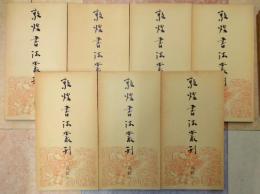 敦煌書法叢刊
敦煌書法叢刊
敦煌書法叢刊
敦煌書法叢刊
敦煌書法叢刊
敦煌書法叢刊
敦煌書法叢刊